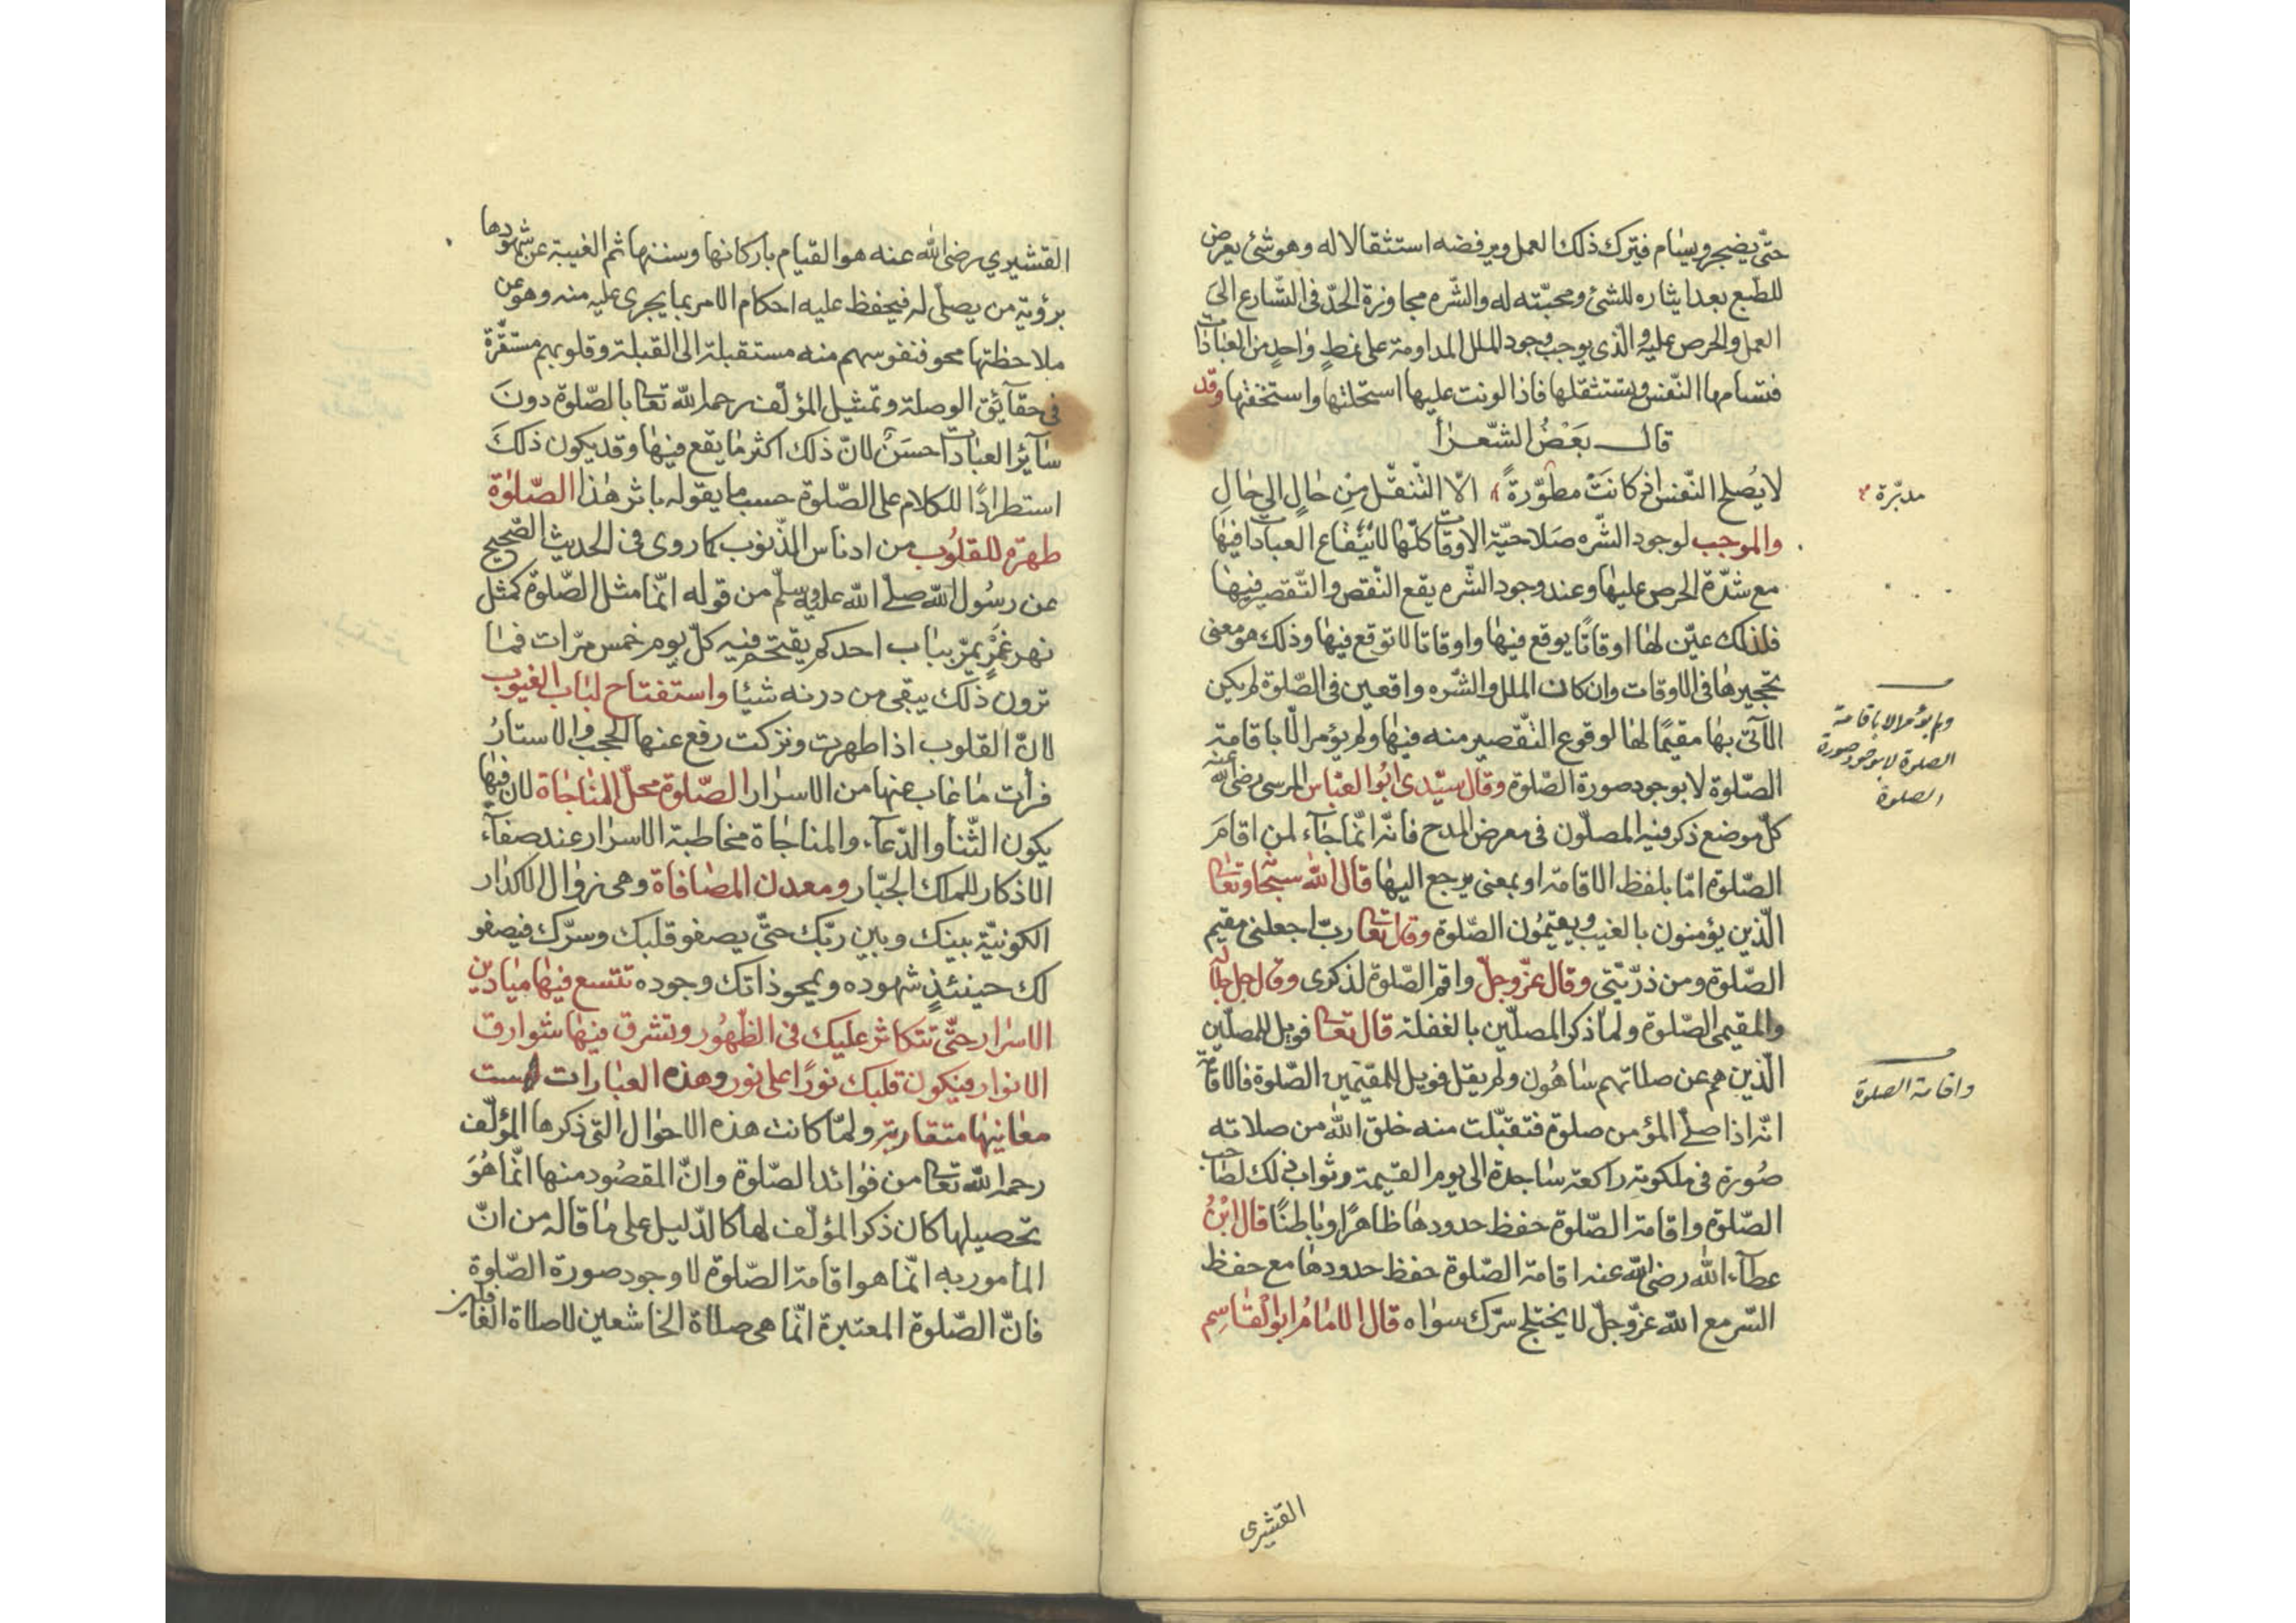 حتّى يضجر ويسام فيترك ذلك العمل ويرفضه استثقالا له وهو شئ يعرض
للطبع بعد ايثاره للشئ ومحبّته له والشّره مجاوزة الحدّ فى التّسارع الى
العمل والحرص عليه والّذى يوجب وجود الملل المداومة على نمط واحد من العبادات
فتسامها النّفس وتستثقلها فاذا لونت عليها استحلتها واستخفتها وقد
قال بَعْضُ الشّعرا
لا يُصلح النّفس اذ كانَتْ مطوّرةً الّا التّنقّل مِن حَالٍ الى حَالِ
والموجب لوجود الشّره صَلاحيّة الاوقات كلّها لايقاع العبادات فيها
مع شدّة الحرص عليها وعند وجود الشّره يقع النّقص والتّقصير فيها
فلذلك عيّن لها اوقاتًا يوقع فيها واوقاتا لا توقع فيها وذلك هو معنى
تحجيرها فى الاوقات وان كان الملل والشّره واقعين فى الصّلوة لم يكن
الآتى بها مقيمًا لها لوقوع التّقصير منه فيها ولم يؤمر الّا باقامة
الصّلوة لا بوجود صورة الصّلوة وقال سيّدى ابُو العبّاس المرسى رضى الله عنه
كلّ موضع ذكر فيه المصلّون فى معرض المدح فانّه انّما جَاء لمن اقامَ
الصّلوة امّا بلفظ الاقامة او بمعنى يرجع اليها قال الله سبحا وتعا
الّذين يؤمنون بالغيب ويقيمُون الصّلوة وقال تعا ربّ اجعلنى مقيم
الصّلوة ومن ذرّيّتى وقال عزّ وجلّ واقم الصّلوة لذكرى وقال جل جلاله
والمقيمى الصّلوة ولمّا ذكر المصلّين بالغفلة قال تعا فويل للمصلّين
الّذين هم عن صلاتهم سَاهُون ولم يقل فويل للمقيمين الصّلوة فالاقامة
انّه اذا صلّى المؤمن صلوة فتقبّلت منه خلق الله من صلاته
صُورة فى ملكوته راكعة سَاجدة الى يوم القيمة وثواب ذلك لصَاحب
الصّلوة واقامة الصّلوة حفظ حدودها ظاهرًا وبَاطنًا قال ابْنُ
عطآء الله رضى الله عنه اقامة الصّلوة حفظ حدودها مع حفظ
السّر مع الله عزّ وجلّ لا يختلج سرّك سواه قال الامَامُ ابو القَاسِم
مدبّرة
ولم يؤمر الا باقامة
الصلوة لا بوجود صورة
الصلوة
واقامة الصلوة
القشيرى
القشيري رضى الله عنه هو القيام باركانها وسننها ثم الغيبة عن شهودها
برؤية من يصلّى له فيحفظ عليه احكام الامر بما يجرى عليه منه وهو عن
ملاحظتها محو فنفوسهم منه مستقبلة الى القبلة وقلوبهم مستقرّة
فى حقآئق الوصلة وتمثيل المؤلّف رحمه الله تعا بالصّلوة دونَ
سَآئر العبادات احسَنُ لانّ ذلك اكثر مَا يقع فيها وقد يكون ذلكَ
استطرادًا للكلام على الصّلوة حسب ما يقوله باثر هٰذا الصّلوٰة
طهرة للقلوُب من ادناس الذّنوب كما روى فى الحديث الصّحيح
عن رسُول الله صلّى الله عليه وسلّم من قوله انّما مثل الصّلوة كمثل
نهر غمْرٍ يمرّ ببَاب احدكم يقتحم فيه كلّ يوم خمس مرّات فمَا
ترون ذلك يبقى من درنه شيئا واستفتاح لبَاب الغيوب
لانّ القلوب اذا طهرت وزكت رفع عنها الحجب والاستارُ
فرأت مَا غاب عنها من الاسرار الصّلوة محلّ المنَاجَاة لان فيها
يكون الثّنا والدّعآء والمناجَاة مخاطبة الاسرار عند صفآء
الاذكار للملك الجبّار ومعدن المصَافاة وهى زوال الاكدار
الكونيّة بينك وبين ربّك حتّى يصفو قلبك وسرّك فيصفو
لك حينئذٍ شهوده ويمحو ذاتك وجوده تتسع فيها ميَادين
الاسرار حتّى تتكاثر عليك فى الظّهُور وتشرق فيها شوارق
الانوار فيكون قلبك نورًا على نور وهذه العبارات
معَانيها متقاربة ولمّا كانت هذه الاحوال التى ذكرها المؤلّف
رحمه الله تعا من فوائد الصّلوة وانّ المقصُود منها انّما هُوَ
تحصيلها كان ذكر المؤلّف لها كالدّليل على مَا قاله من انّ
المأمور به انّما هو اقامة الصّلوة لا وجود صورة الصّلوة
فانّ الصّلوة المعتبرة انّما هى صلاة الخاشعين لا صلاة الغافلين